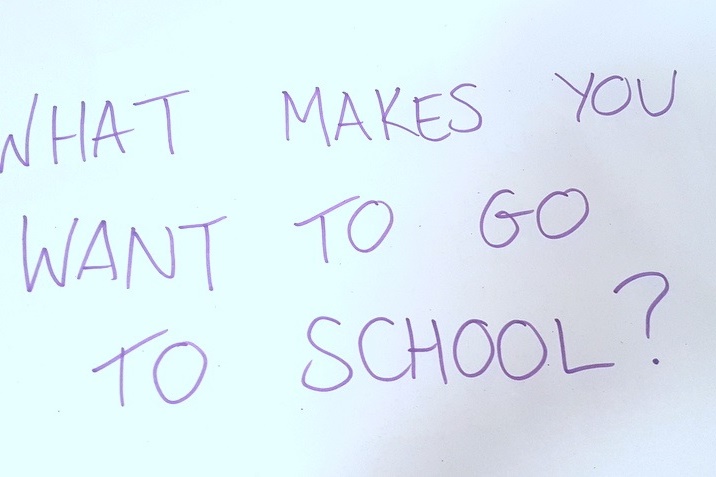 WHAT MAKES YOU
WANT TO GO
TO SCHOOL?